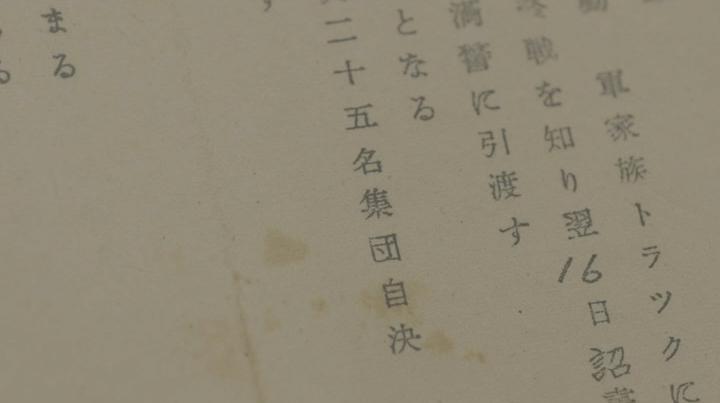 軍家族トラックに
終戦を知り翌16日詔書
満警に引渡す
となる
二十五名集団自決
まる
る